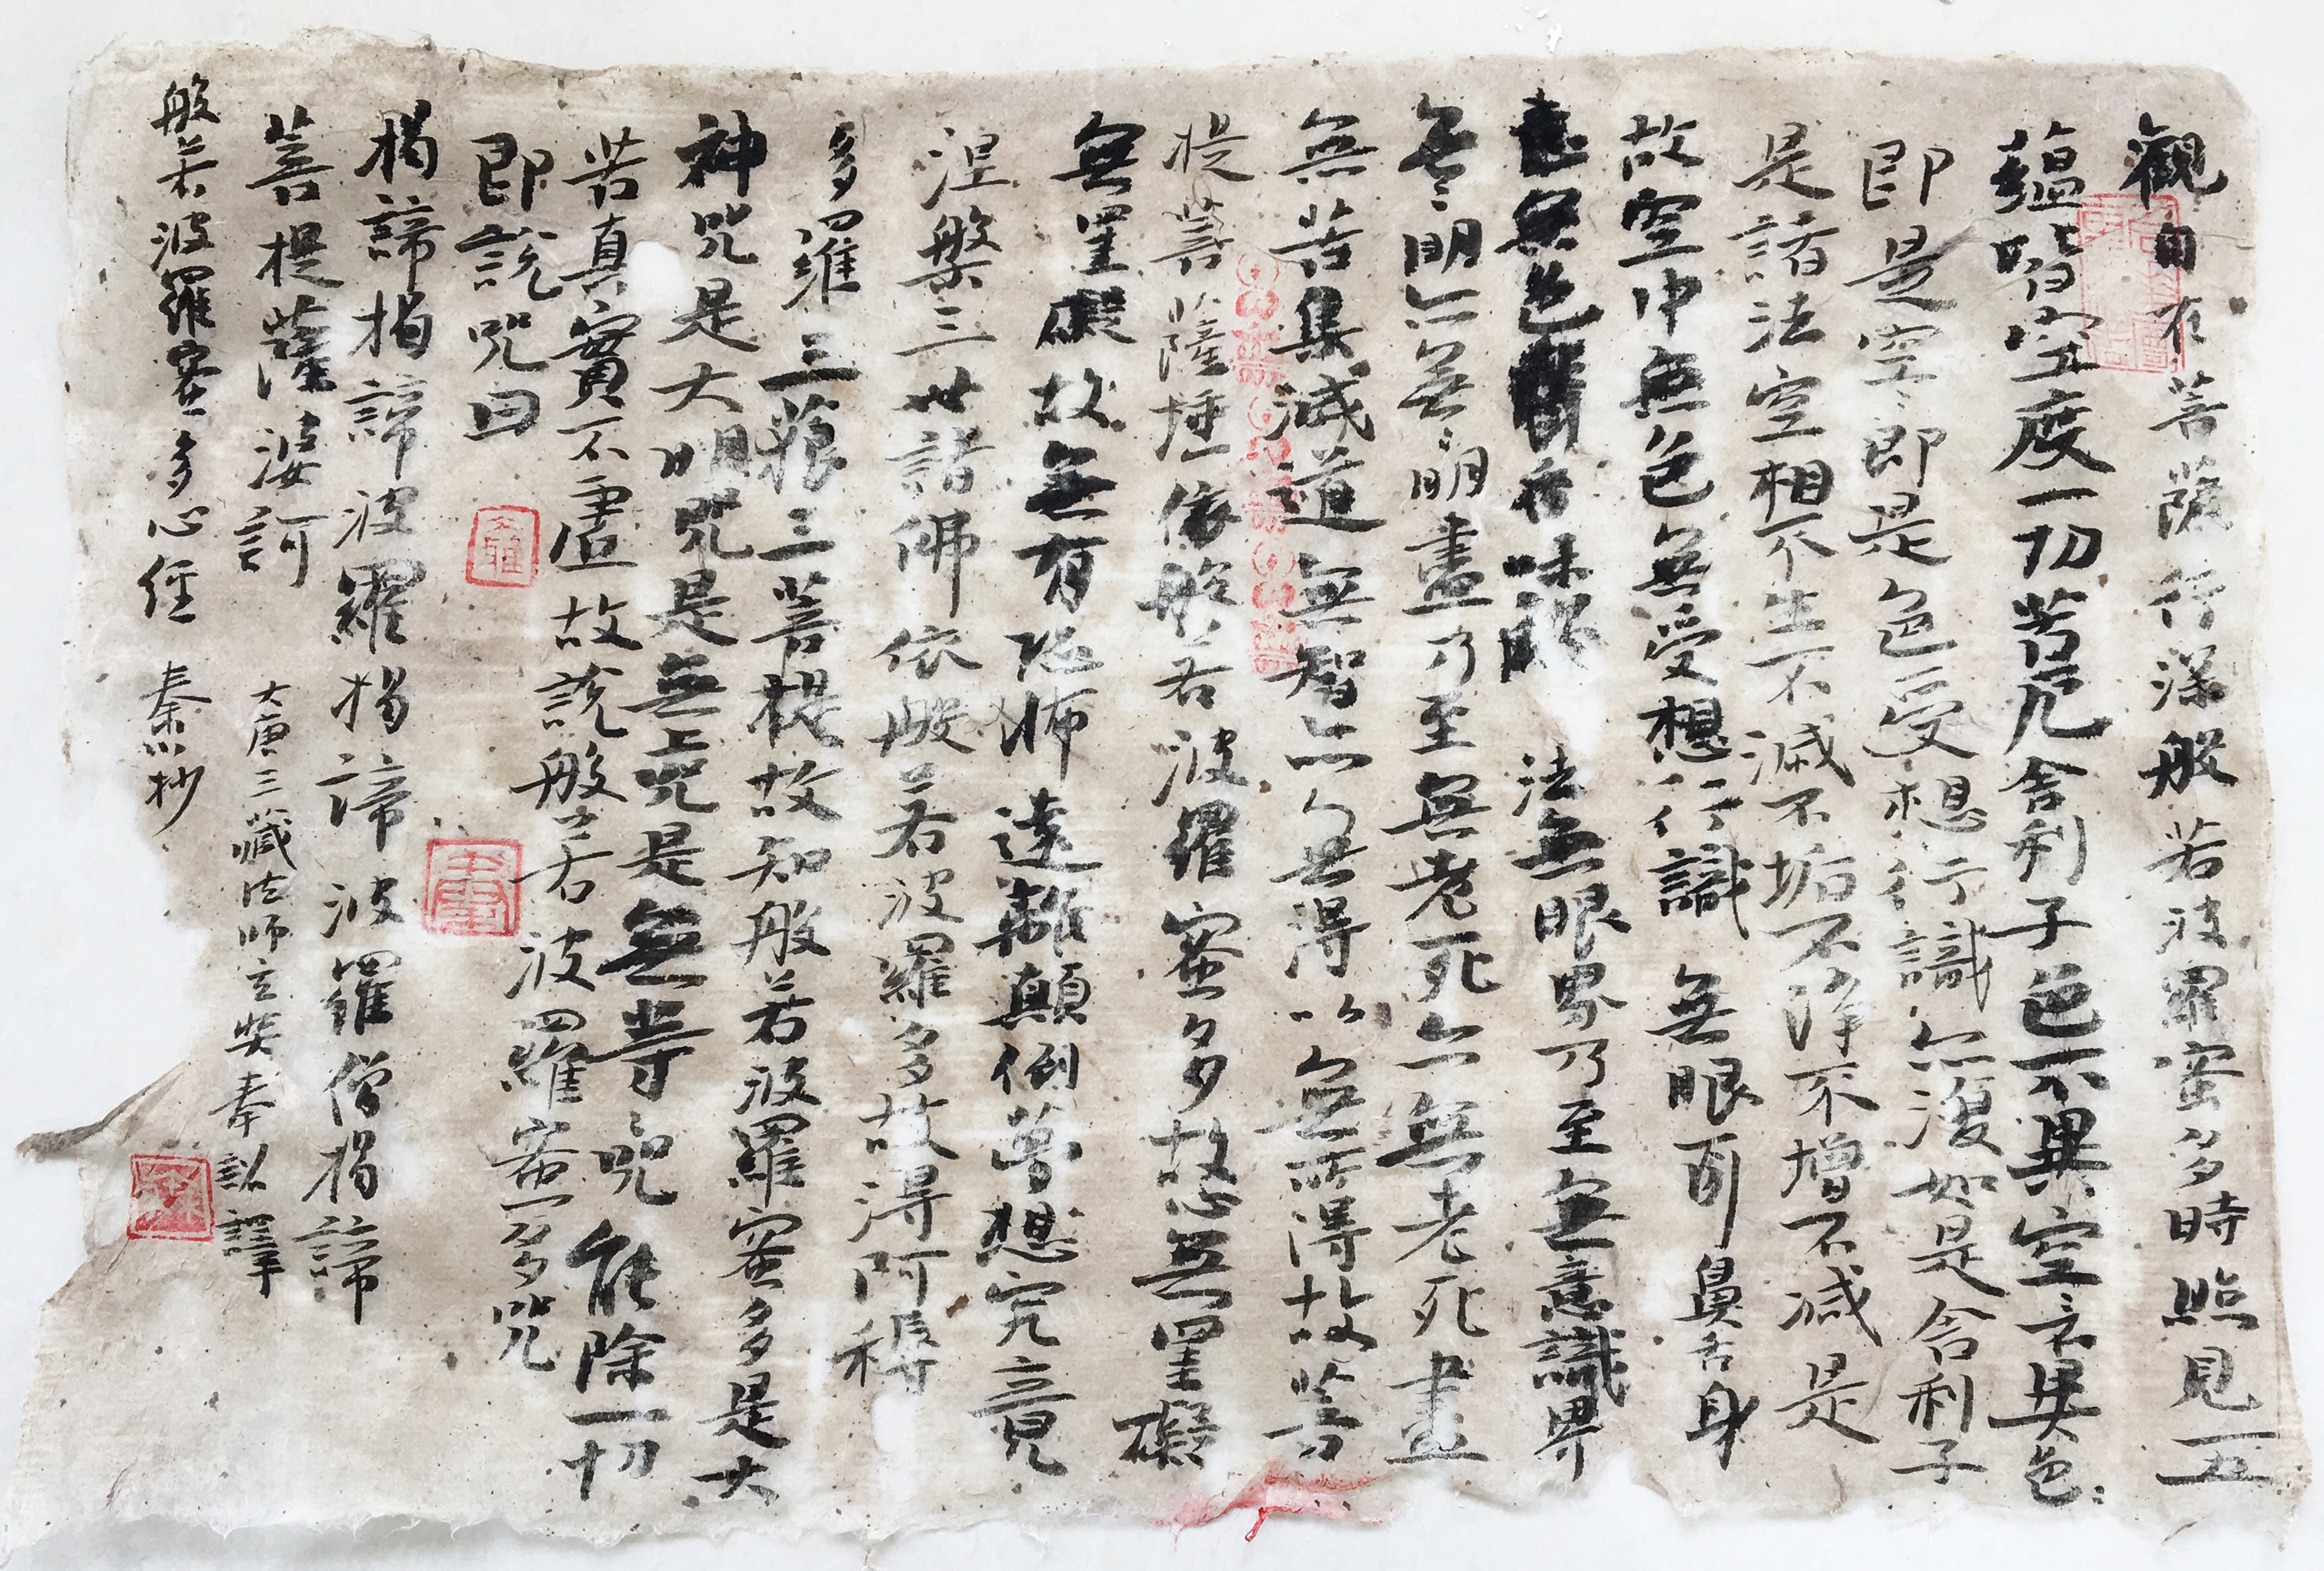 觀自在菩薩行深般若波羅蜜多時照見五
蘊皆空度一切苦厄舍利子色不異空々不異色々
即是空々即是色受想行識亦復如是舍利子
是諸法空相不生不滅不垢不淨不增不減是
故空中無色無受想行識無眼耳鼻舌身
意無色聲香味觸法無眼界乃至無意識界
無々明亦無々明盡乃至無老死亦無老死盡
無苦集滅道無智亦無得以無所得故菩
提菩薩埵依般若波羅蜜多故心無罣礙
無罣礙故無有恐怖遠離顛倒夢想究竟
涅槃三世諸佛依般若波羅多故得阿耨
多羅三藐三菩提故知般若波羅蜜多是大
神咒是大明咒是無上咒是無等咒能除一切
苦真實不虛故說般若波羅蜜多咒
即說咒曰
揭諦揭諦波羅揭諦波羅僧揭諦
菩提薩婆訶
大唐三藏法師玄奘奉詔譯
般若波羅蜜多心經 秦抄